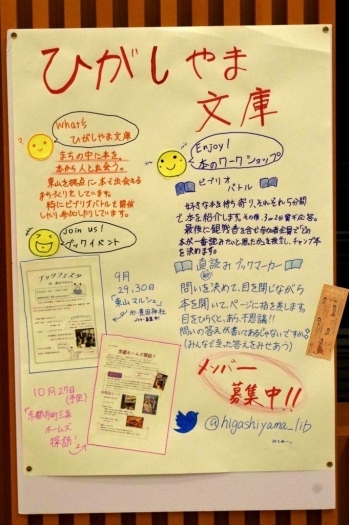 ひがしやま
文庫
What's
ひがしやま文庫
まちの中に本を。
本から人と出会う。
東山を拠点に本で出会える
まちづくりをしています。
特にビブリオバトルを開催
したり参加したりしています。
Join us!
ブックイベント
Enjoy!
本のワークショップ
ビブリオ
バトル
好きな本を持ち寄り、それぞれ5分間
で本を紹介します。その後、
最後に観覧者を含む参加者全員で
本が一番読みたいと思ったかを投票し、チャンプ本
を決めます。
直読みブックマーカー
問いを決めて、目を閉じながら
本を開いて、ページに指を差します。
目をひらくと、あら不思議!!
問いの答えが書いてあるじゃないですか
(みんなで至った答えをみせあう)
9月
29.30日
「東山マルシェ」
10月27日
(予定)
「京都寺町三条
ホームズ
探訪」
メンバー
募集中!!
@higashiyama_lib